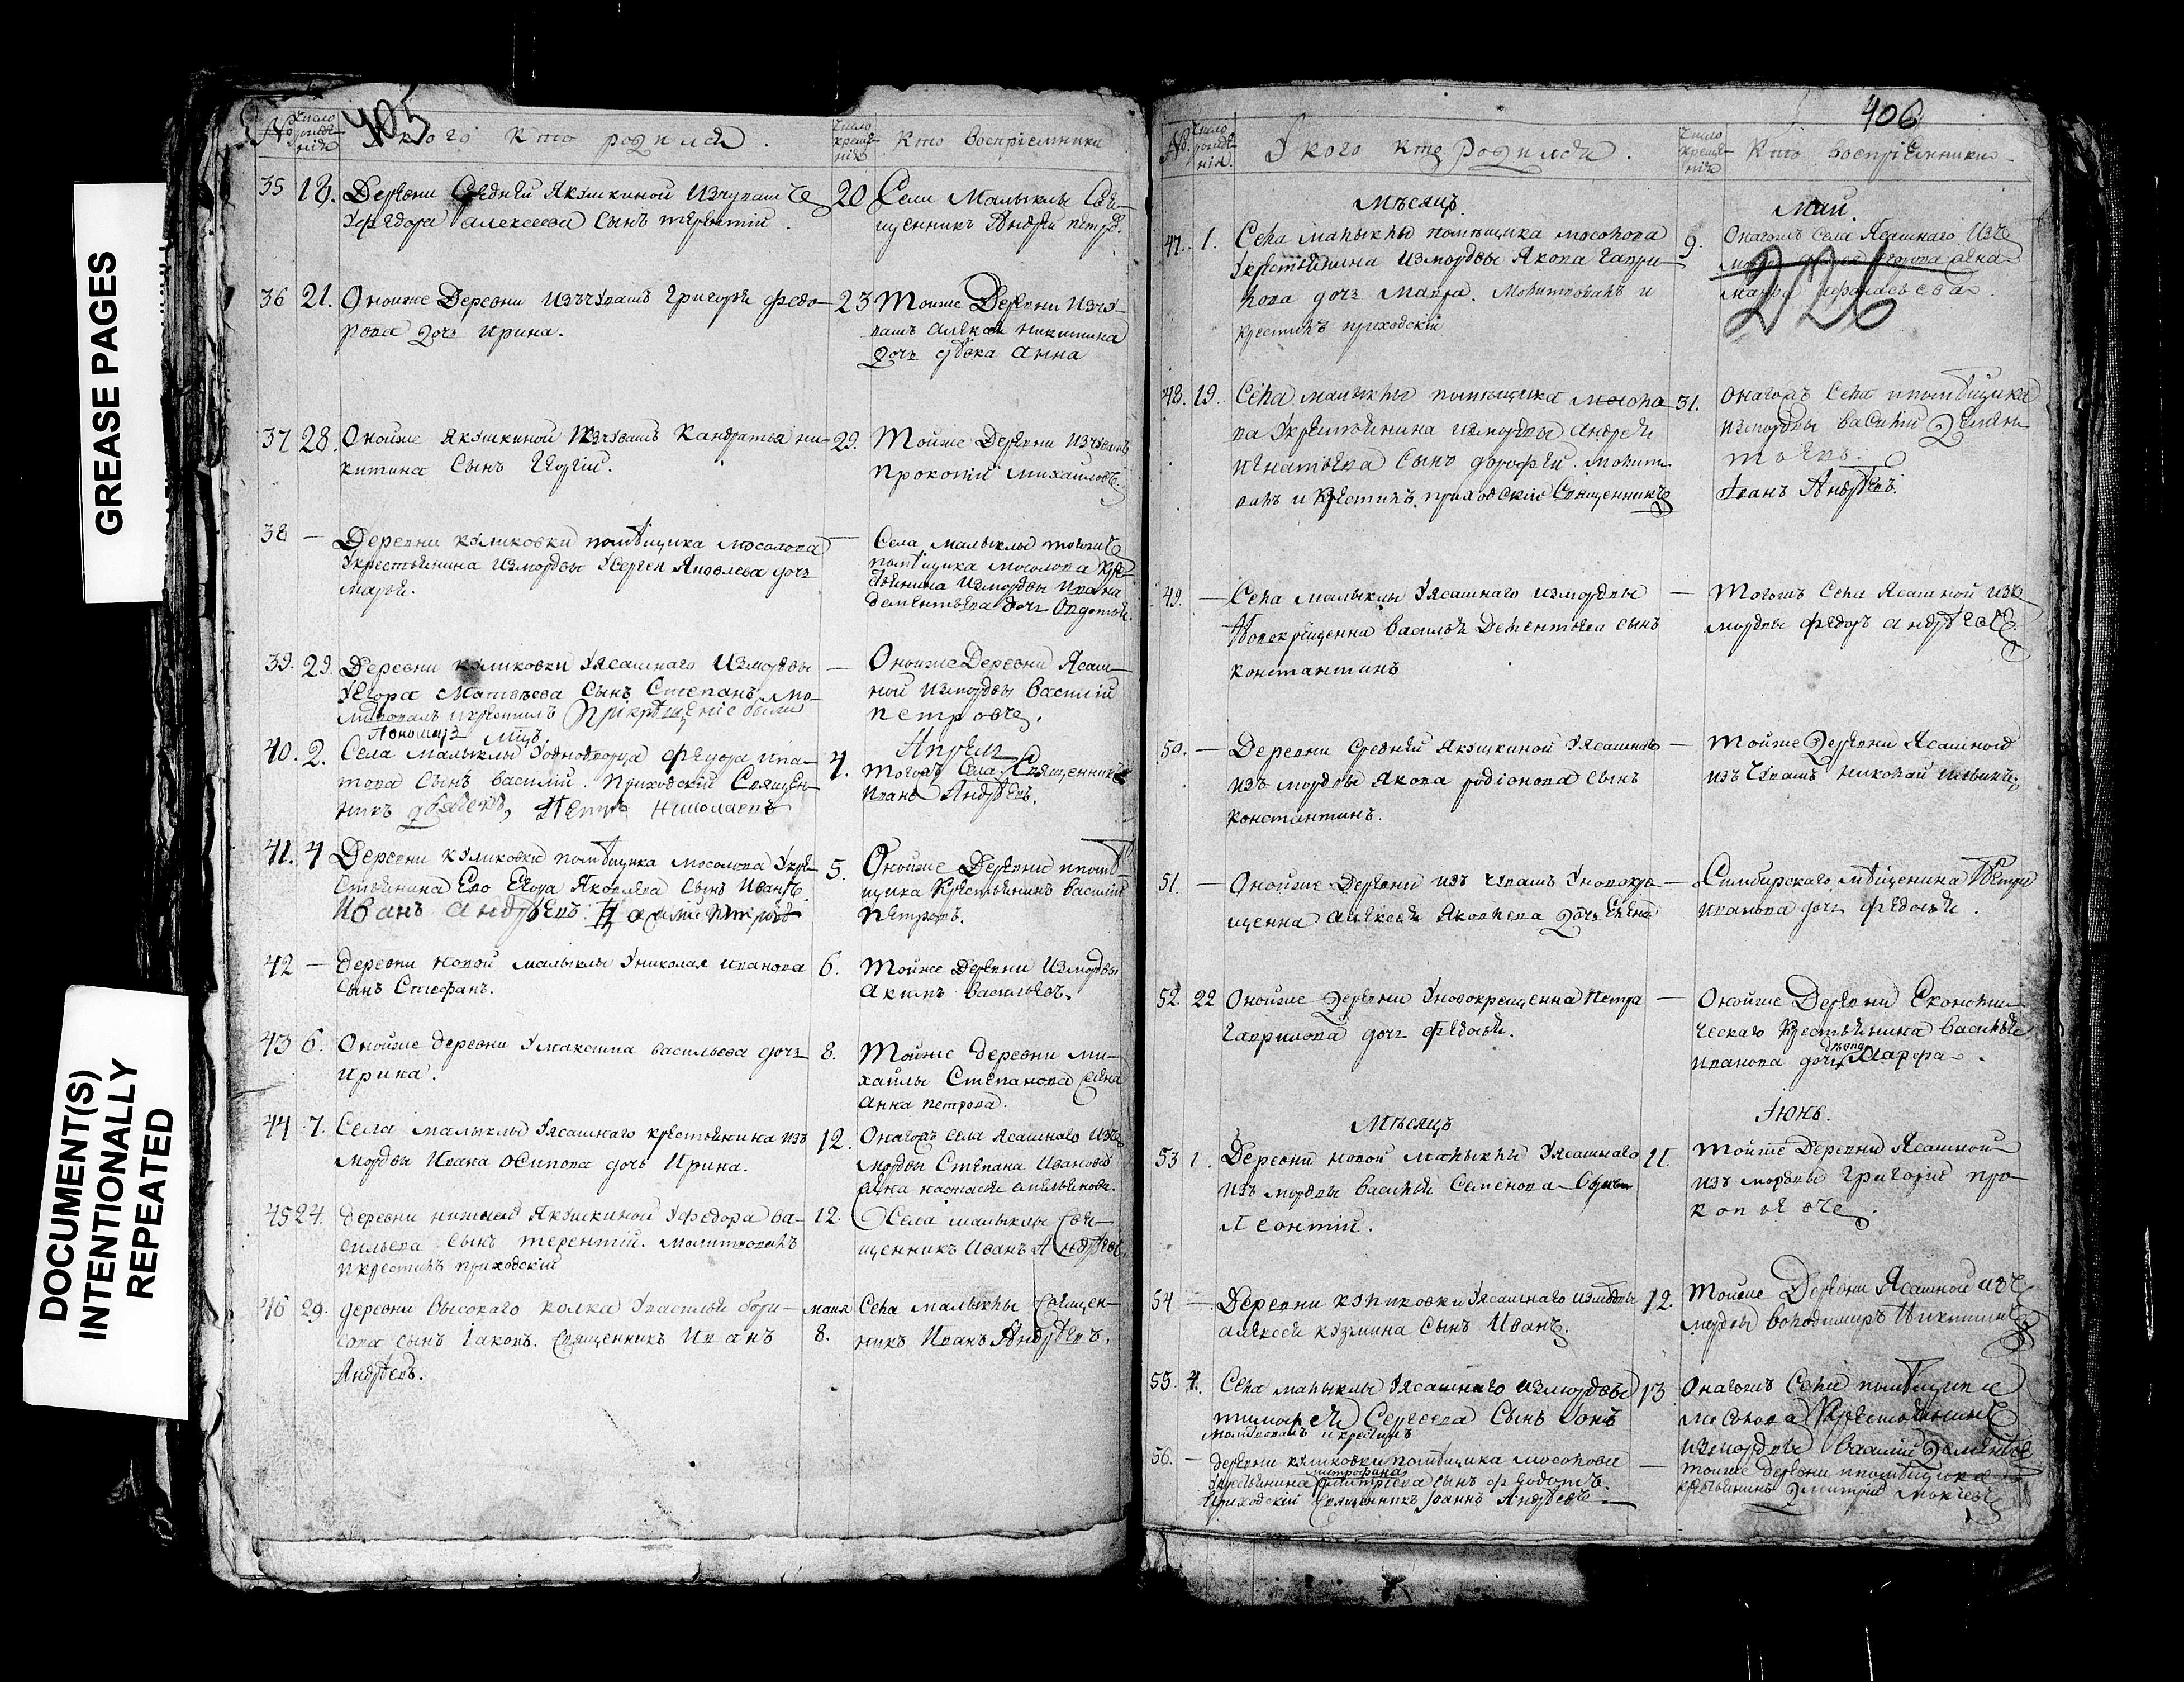 GREASE PAGES
DOCUMENT(S)
INTENTIONALLY
REPEATED
405
№
число рожде-
нія
У кого кто родился.
число креще-
нія
Кто восприемники
35 18. Деревни Средней Якушкиной изчуваш
Уфедора алексеева сынъ терентій.
20 Села Малыклы Свя-
щенникъ Андрей петр.
36 21. Оноиже Деревни изъчувашъ Григорья федо-
рова дочь ирина.
23 Тоиже Деревни изчу-
вашъ алексея никитина
дочь девка анна
37 28. Оноиже якушкиной изчувашъ кандратья ни-
китина сынъ Георгій.
29. Тоиже Деревни изчувашъ
прокопій михаиловъ.
38 — Деревни куликовки помѣщика мосолова
Укрестьянина измордвы Усергея Яковлева дочь
марья.
— Села малыклы тогожъ
помѣщика мосолова кре-
стьянина измордвы Ивана
дементьева дочь Авдотья.
39. 29. Деревни куликовки Уясашнаго измордвы
Уегора Матвѣева сынъ Степанъ мо-
литвовалъ икрестилъ Прікрѣщеніе были
Пономарь
— Оноиже Деревни Ясаш-
ной измордвы василій
петровъ.
Мцъ Апрель
40. 2. Села малыклы Уоднодворца федора ипа-
това сынъ василій. Приходскій Священ-
никъ дьячекъ, Петръ николаевъ
4. тогожъ Села Священникъ
иванъ Андрѣевъ.
41. 4 Деревни куликовки помѣщика мосолова Укре-
стьянина Его Егора Яковлева сынъ Иванъ.
Иванъ андрѣевъ.
5. Оноиже Деревни помѣ-
щика крестьянинъ василій
петровъ.
42 — деревни новой малыклы Униколая иванова
сынъ Стефанъ.
6. Тоиже Деревни измордвы
акимъ васильевъ.
43 6. Оноиже деревни Умаксима васильева дочь
ирина.
8. Тоиже деревни ми-
хаилы Степанова жена
анна петрова.
44 7. Села малыклы Уясашнаго крестьянина изъ
мордвы Ивана осипова дочь Ирина.
12. Онагожъ села ясашнаго изъ
мордвы Степана Иванова
жена настасья емельянова.
45 24. деревни нижней якушкиной Уфедора ва-
сильева сынъ терентій. молитвовалъ
икрестилъ приходскій
12. Села малыклы свя-
щенникъ Иванъ Андрѣевъ.
46 29. деревни Высокаго колка Увасилья бори-
сова сынъ іаковъ. священникъ Иванъ
Андрѣевъ.
маия
8. Села малыклы священ-
никъ Иванъ Андрѣевъ.
406
№
число рожде-
нія.
У кого кто родился.
число креще-
нія
Кто восприемники
Мѣсяцъ Май.
47. 1. Села малыклы помѣщика мосолова
Укрестьянина измордвы Якова гаври-
лова дочь Мавра. Молитвовалъ и
крестилъ приходскій
9. Онагожъ села Ясашнаго изъ
226
48. 19. Села малыклы помѣщика мосоло-
ва Укрестьянина измордвы андрея
игнатьева сынъ дорофей. молитв-
валъ и крестилъ приходскій Священникъ
31. онагожъ села помѣщика
измордвы василій Дементь
Іванъ Андрѣевъ.
49. — Села малыклы Уясашнаго измордвы
Новокрещенна Василья Дементьева сынъ
константинъ
— Тогожъ Села Ясашной изъ
мордвы федоръ андрѣевъ
50. — Деревни средней якушкиной Уясашнаго
изъ мордвы якова родіонова сынъ
константинъ.
— Тоиже Деревни Ясашной
изъ чувашъ николай
51. — Оноиже Деревни изъ чувашъ Уновокре-
щенна алексея яковлева дочь елена
— Симбирскаго мѣщенина Петра
иванова дочь федосья.
52. 22 Оноиже Деревни Уновокрещенна Петра
гаврилова дочь федосья.
— Оноиже Деревни Економи-
ческаго крестьянина василья
иванова дочь девка Марфа.
Мѣсяцъ Іюнь.
53 1. Деревни новой малыклы Уясашнаго
изъ мордвы василья Семенова Сынъ
Леонтій.
11. Тоиже Деревни Ясашной
изъ мордвы григорій про-
копьевъ.
54 — Деревни куликовки Уясашнаго измордвы
алексея кузмина сынъ Иванъ.
12. Тоиже Деревни Ясашной изъ
мордвы володимиръ Никитинъ
55. 4. Села малыклы Уясашнаго измордвы
тимофея Сергеева сынъ Іонъ
молитвовалъ и крестилъ
13 Онагожъ Села помѣщика
мосолова Крестьянинъ
измордвы василій Дементьевъ
56. — деревни куликовки помѣщика мосолова
Укрестьянина митрофана дмитріева сынъ федотъ.
Приходскій священникъ Іоаннъ Андрѣевъ
— тоиже деревни помѣщика
крестьянинъ Дмитрій мокіевъ